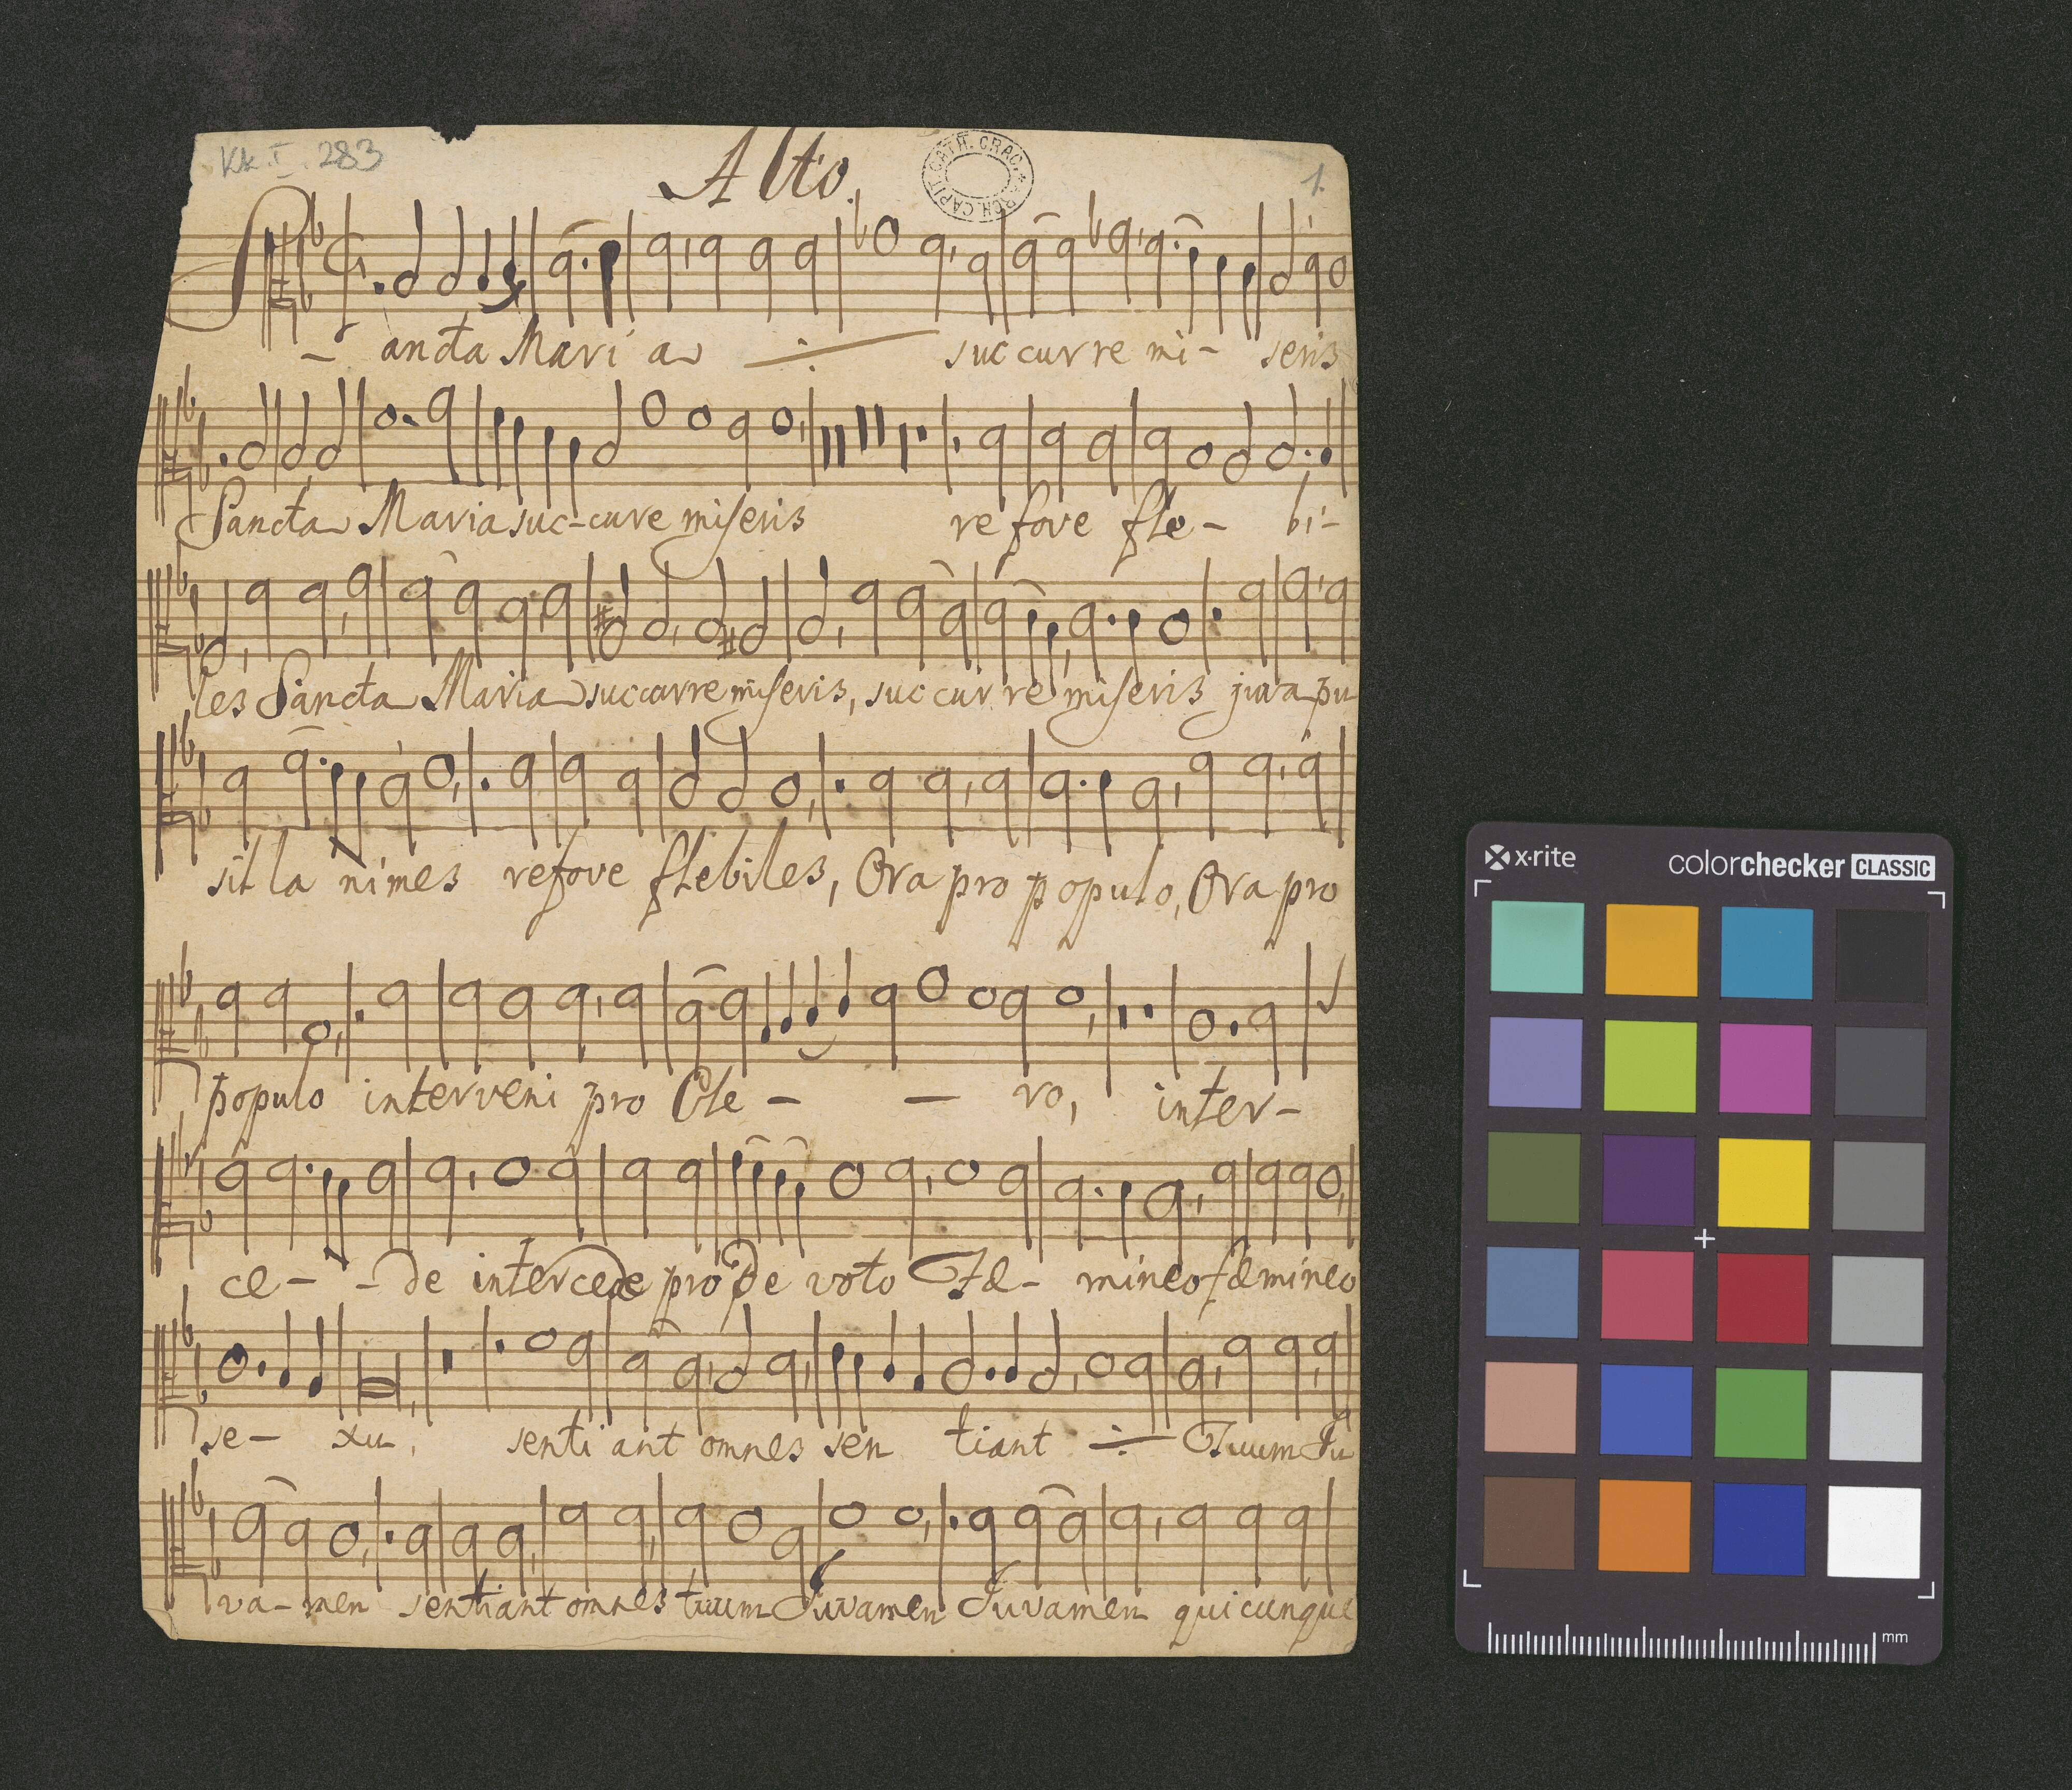 Kk. I. 283
Alto.
ARCH. CAPIT. CATH. CRAC.
1.
Sancta Mari a ÷ succurre mi- seris
Sancta Maria suc-cure miseris re fove fle- bi-
les Sancta Maria succurre miseris, succurre miseris juva pu
sil la nimes refove flebiles, Ora pro populo, Ora pro
populo interveni pro Cle - - ro, inter-
ce- - de intercede pro de voto Fæ- mineo fæmineo
se- xu, senti ant omnes sen tiant ÷ Tuum Ju
va-men sentiant omnes tuum Juvamen Juvamen quicunque
x·rite
colorchecker CLASSIC
mm